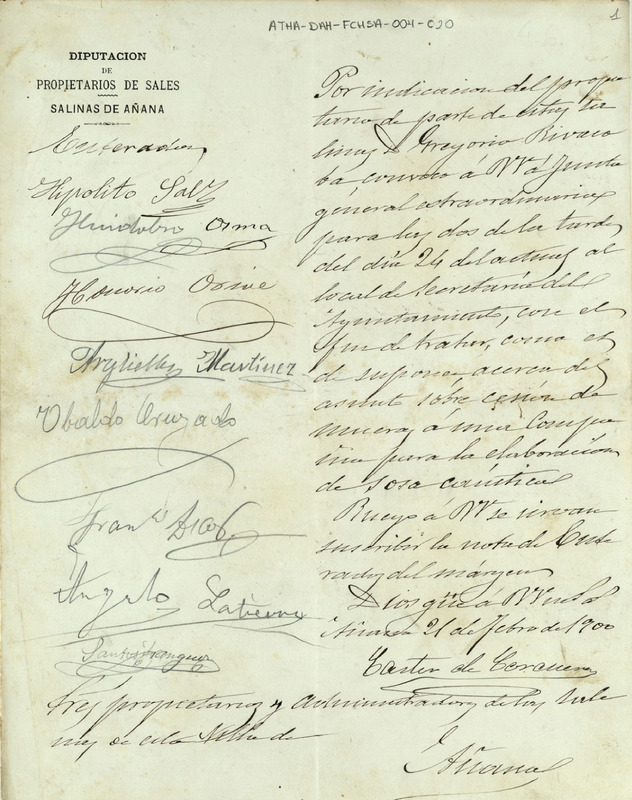 ATHA-DAH-FCHSA-004-020
1
DIPUTACION
DE
PROPIETARIOS DE SALES
SALINAS DE AÑANA
Enterados
Hipolito Salz
Huidobro Orma
Honorio Orive
Martinez
Ubaldo Cruzado
Angelo Latierro
Por indicacion del propie
tario de parte de estas sa
linas D Gregorio Rivaco
ba convoco á VV á Junta
general extraordinaria
para las dos de la tarde
del dia 24 del actual al
local de Secretaria del
Ayuntamiento, con el
fin de tratar, como es
de suponer acerca del
asunto sobre cesión de
mueras á una Compa
ñia para la elaboración
de sosa caústica
Ruego á VV se sirvan
suscribir la nota de Ente
rados del márgen
Dios güe á VV m. a.
Añana 21 de Febro de 1900
de
Sres propietarios y Administradores de las Sali
nas de esta Villa de
Añana